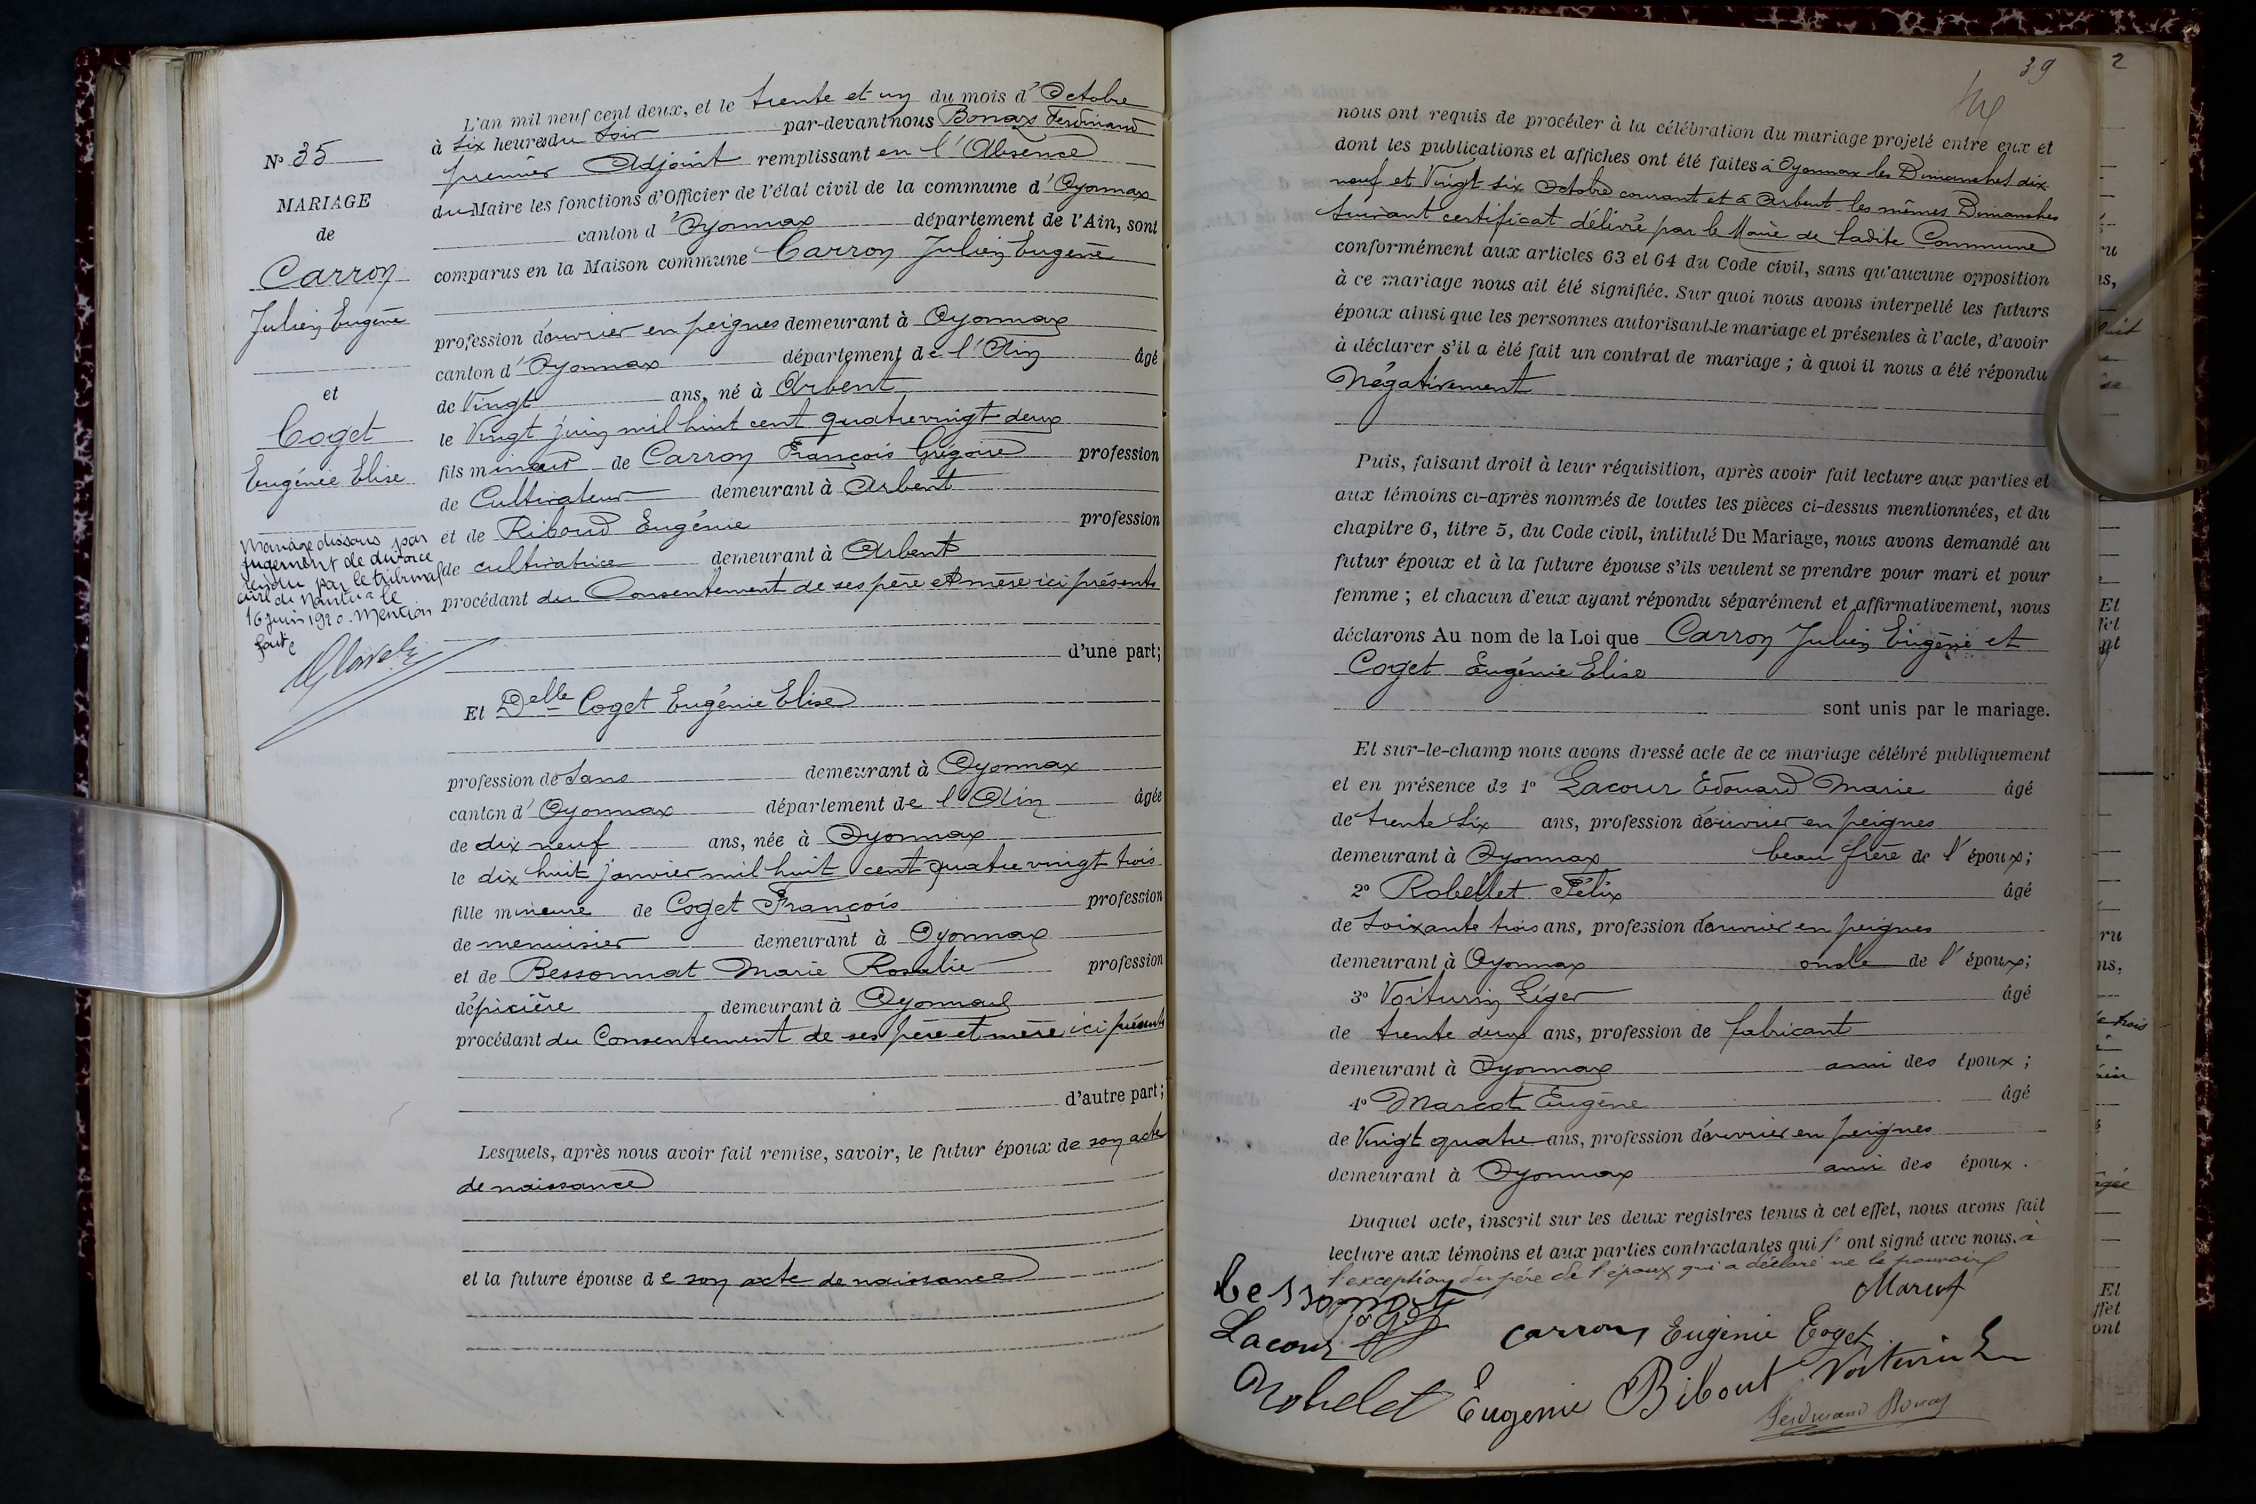 N° 35
MARIAGE
de
Carron
Julien Eugène
et
Coget
Eugénie Elise
Mariage dissous par
jugement de divorce
rendu par le tribunal
civil de Nantua le
16 juin 1920. Mention
faite
L'an mil neuf cent deux, et le trente et un du mois d'Octobre
à six heures du soir par-devant nous Bonaz Ferdinand
premier Adjoint remplissant en l'Absence
du Maire les fonctions d'Officier de l'état civil de la commune d'Oyonnax
canton d'Oyonnax département de l'Ain, sont
comparus en la Maison commune Carron Julien Eugène
profession d'ouvrier en peignes demeurant à Oyonnax
canton d'Oyonnax département de l'Ain âgé
de Vingt ans, né à Arbent
le Vingt juin mil huit cent quatre vingt deux
fils mineur de Carron François Grégoire profession
de Cultivateur demeurant à Arbent
et de Riboud Eugénie profession
de cultivatrice demeurant à Arbent
procédant du Consentement de ses père et mère ici présents
d'une part;
Et Delle Coget Eugénie Elise
profession de Sans demeurant à Oyonnax
canton d'Oyonnax département de l'Ain âgée
de dix neuf ans, née à Oyonnax
le dix huit janvier mil huit cent quatre vingt trois
fille mineure de Coget François profession
de menuisier demeurant à Oyonnax
et de Bessonnat Marie Rosalie profession
d'épicière demeurant à Oyonnax
procédant du Consentement de ses père et mère ici présents
d'autre part;
Lesquels, après nous avoir fait remise, savoir, le futur époux de son acte
de naissance
et la future épouse de son acte de naissance
39
nous ont requis de procéder à la célébration du mariage projeté entre eux et
dont les publications et affiches ont été faites à Oyonnax les Dimanches dix
neuf et Vingt six Octobre courant et à Arbent les mêmes Dimanches
suivant certificat délivré par le Maire de ladite Commune
conformément aux articles 63 et 64 du Code civil, sans qu'aucune opposition
à ce mariage nous ait été signifiée. Sur quoi nous avons interpellé les futurs
époux ainsi que les personnes autorisant le mariage et présentes à l'acte, d'avoir
à déclarer s'il a été fait un contrat de mariage ; à quoi il nous a été répondu
Négativement
Puis, faisant droit à leur réquisition, après avoir fait lecture aux parties et
aux témoins ci-après nommés de toutes les pièces ci-dessus mentionnées, et du
chapitre 6, titre 5, du Code civil, intitulé Du Mariage, nous avons demandé au
futur époux et à la future épouse s'ils veulent se prendre pour mari et pour
femme ; et chacun d'eux ayant répondu séparément et affirmativement, nous
déclarons Au nom de la Loi que Carron Julien Eugène et
Coget Eugénie Elise
sont unis par le mariage.
Et sur-le-champ nous avons dressé acte de ce mariage célébré publiquement
et en présence de 1° Lacour Edouard Marie âgé
de trente six ans, profession d'ouvrier en peignes
demeurant à Oyonnax beau frère de l'époux;
2° Robellet Félix âgé
de soixante trois ans, profession d'ouvrier en peignes
demeurant à Oyonnax oncle de l'époux;
3° Voiturin Léger âgé
de trente deux ans, profession de fabricant
demeurant à Oyonnax ami des époux ;
4° Marcot Eugène âgé
de Vingt quatre ans, profession d'ouvrier en peignes
demeurant à Oyonnax ami des époux.
Duquel acte, inscrit sur les deux registres tenus à cet effet, nous avons fait
lecture aux témoins et aux parties contractantes qui l'ont signé avec nous, à
l'exception du père de l'époux qui a déclaré ne le pouvoir
Bessonnat Marcot
Coget
Lacour Carron Eugénie Coget
Robelet Eugenie Bibout Voiturin L
Ferdinand Bonaz
2